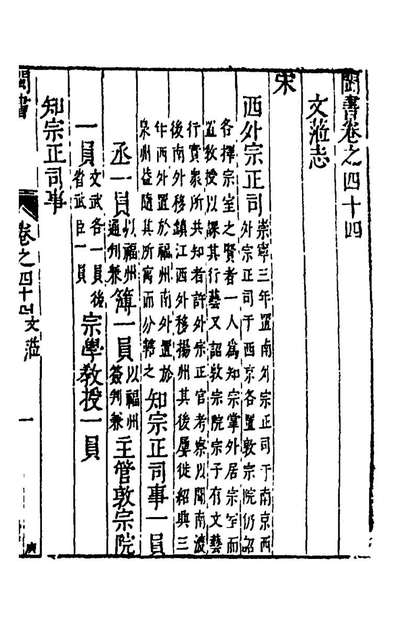 閩書卷之四十四
文蒞志
宋
西外宗正司
崇寧三年置南外宗正司于南京西
外宗正司于西京各置敦宗院仍詔
各擇宗室之賢者一人為知宗掌外居宗室而
置教授以課其行藝又詔敦宗院宗子有文藝
行實衆所共知者許外宗正官考察以聞南渡
後南外移鎮江西外移揚州其後屢徙紹興三
年西外置於福州南外置於
泉州蓋隨其所寓而分轄之
知宗正司事一員
丞一員
以福州
通判兼
簿一員
以福州
簽判兼
主管敦宗院
一員
文武各一員後
省武臣一員
宗學教授一員
知宗正司事
閩書
卷之四十四文蒞
一